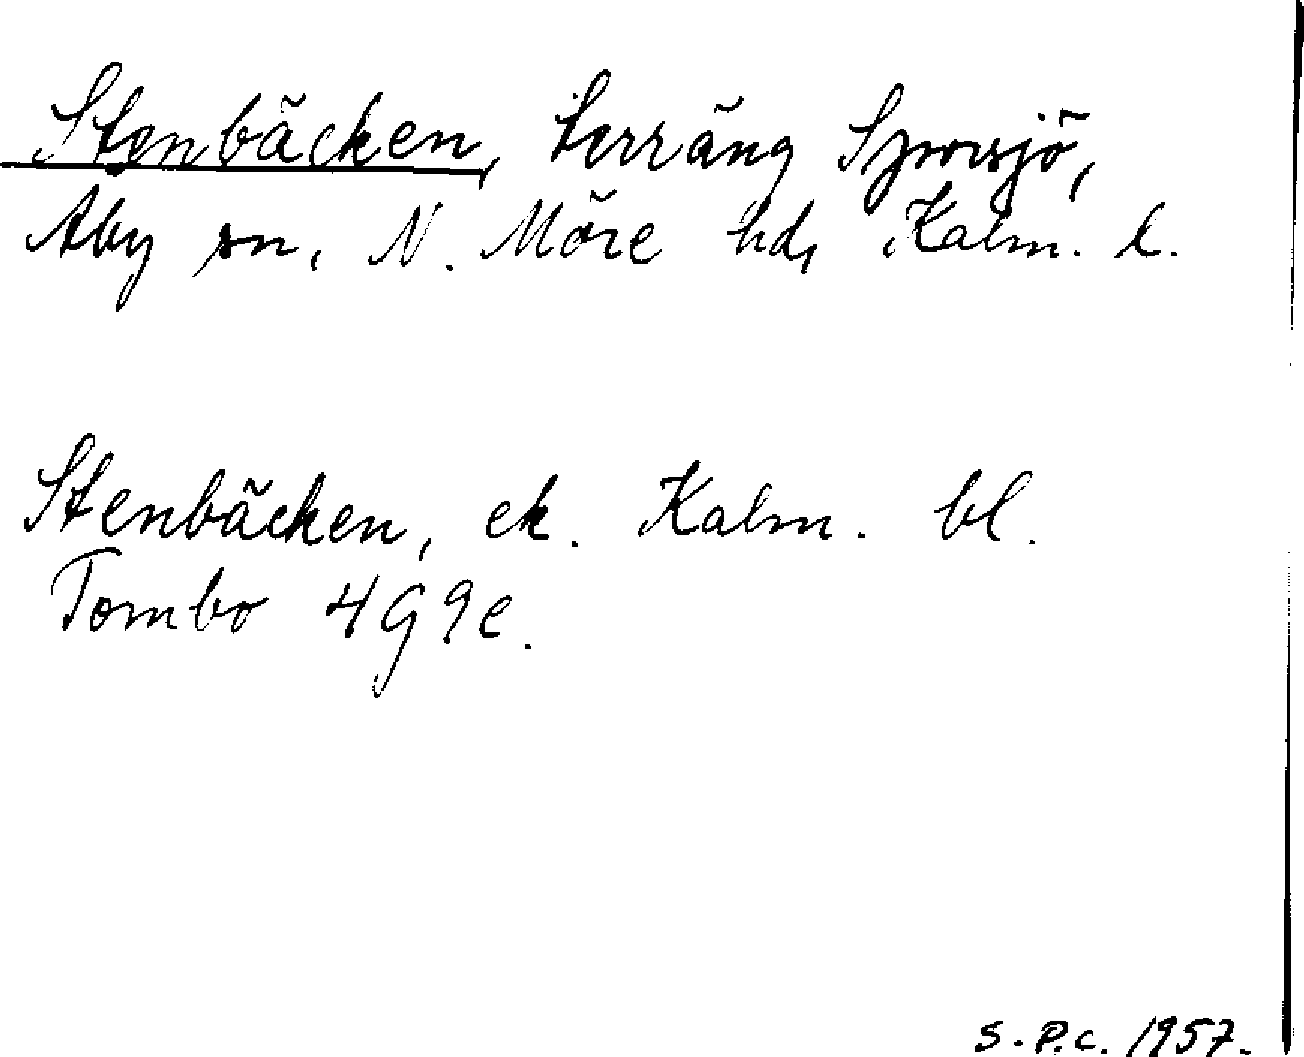 Stenbäcken, terräng Sporsjö,
Åby sn, N. Möre hd, Kalm. l.
Stenbäcken, ek. Kalm. bl.
Tombo 4G9e.
S.P.C. 1957.